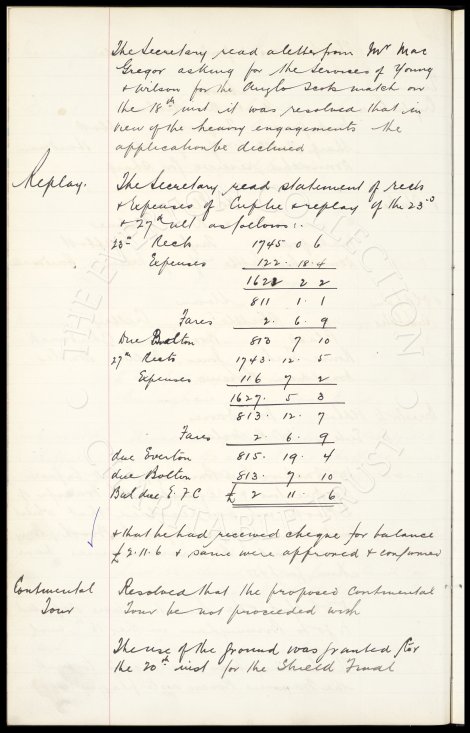 The Secretary read a letter from Mr Mac
Gregor asking for the services of Young
& Wilson for the Anglo Scots match on
the 18th inst it was resolved that in
view of the heavy engagements the
application be declined
Replay. The Secretary read statement of rects
& expenses of Cup tie & replay of the 23rd
& 27th ult as follows:-
23rd Rects 1745 0 6
Expenses 122. 18. 4
1622 2 2
811 1. 1
Fares 2. 6. 9
Due Bolton 813 7 10
27th Rects 1743. 12. 5
Expenses 116 7 2
1627. 5 3
813. 12. 7
Fares 2. 6. 9
due Everton 815. 19. 4
due Bolton 813. 7. 10
Bal due E.F.C £ 2 11. 6
& that he had received cheque for balance
£2.11.6 & same were approved & confirmed
Continental Resolved that the proposed Continental
Tour Tour be not proceeded with
The use of the ground was granted for
the 20th inst for the Shield Final
THE EVERTON COLLECTION
CHARITABLE TRUST